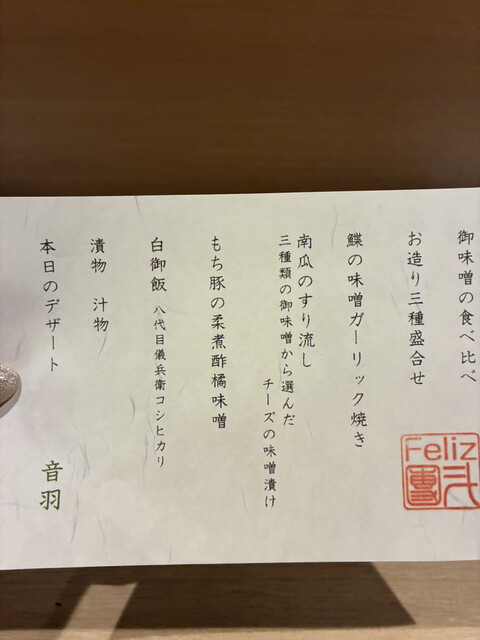 御味噌の食べ比べ
お造り三種盛合せ
鰈の味噌ガーリック焼き
南瓜のすり流し
三種類の御味噌から選んだ
チーズの味噌漬け
もち豚の柔煮酢橘味噌
白御飯 八代目儀兵衛コシヒカリ
漬物 汁物
本日のデザート
音羽
Feliz